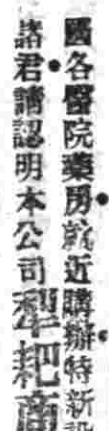 國各醫院藥房就近購辦特新
諸君請認明本公司犂耙商